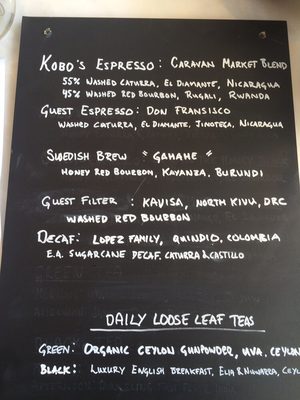 Kobo's Espresso: Caravan Market Blend
55% Washed Caturra, El Diamante, Nicaragua
45% Washed Red Bourbon, Rugali, Rwanda
Guest Espresso: Don Fransisco
Washed Caturra, El Diamante, Jinotega, Nicaragua
Swedish Brew "Gahahe"
Honey Red Bourbon, Kayanza, Burundi
Guest Filter: Kavisa, North Kivu, DRC
Washed Red Bourbon
Decaf: Lopez Family, Quindio, Colombia
E.A. Sugarcane Decaf, Caturra & Castillo
Daily Loose Leaf Teas
Green: Organic Ceylon Gunpowder, Uva, Ceylon
Black: Luxury English Breakfast,